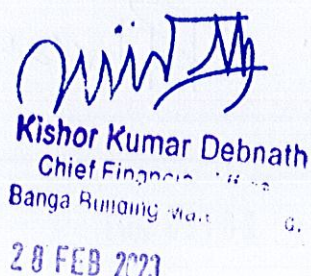 Kishor Kumar Debnath
Chief
Banga Building
28 FEB 2023